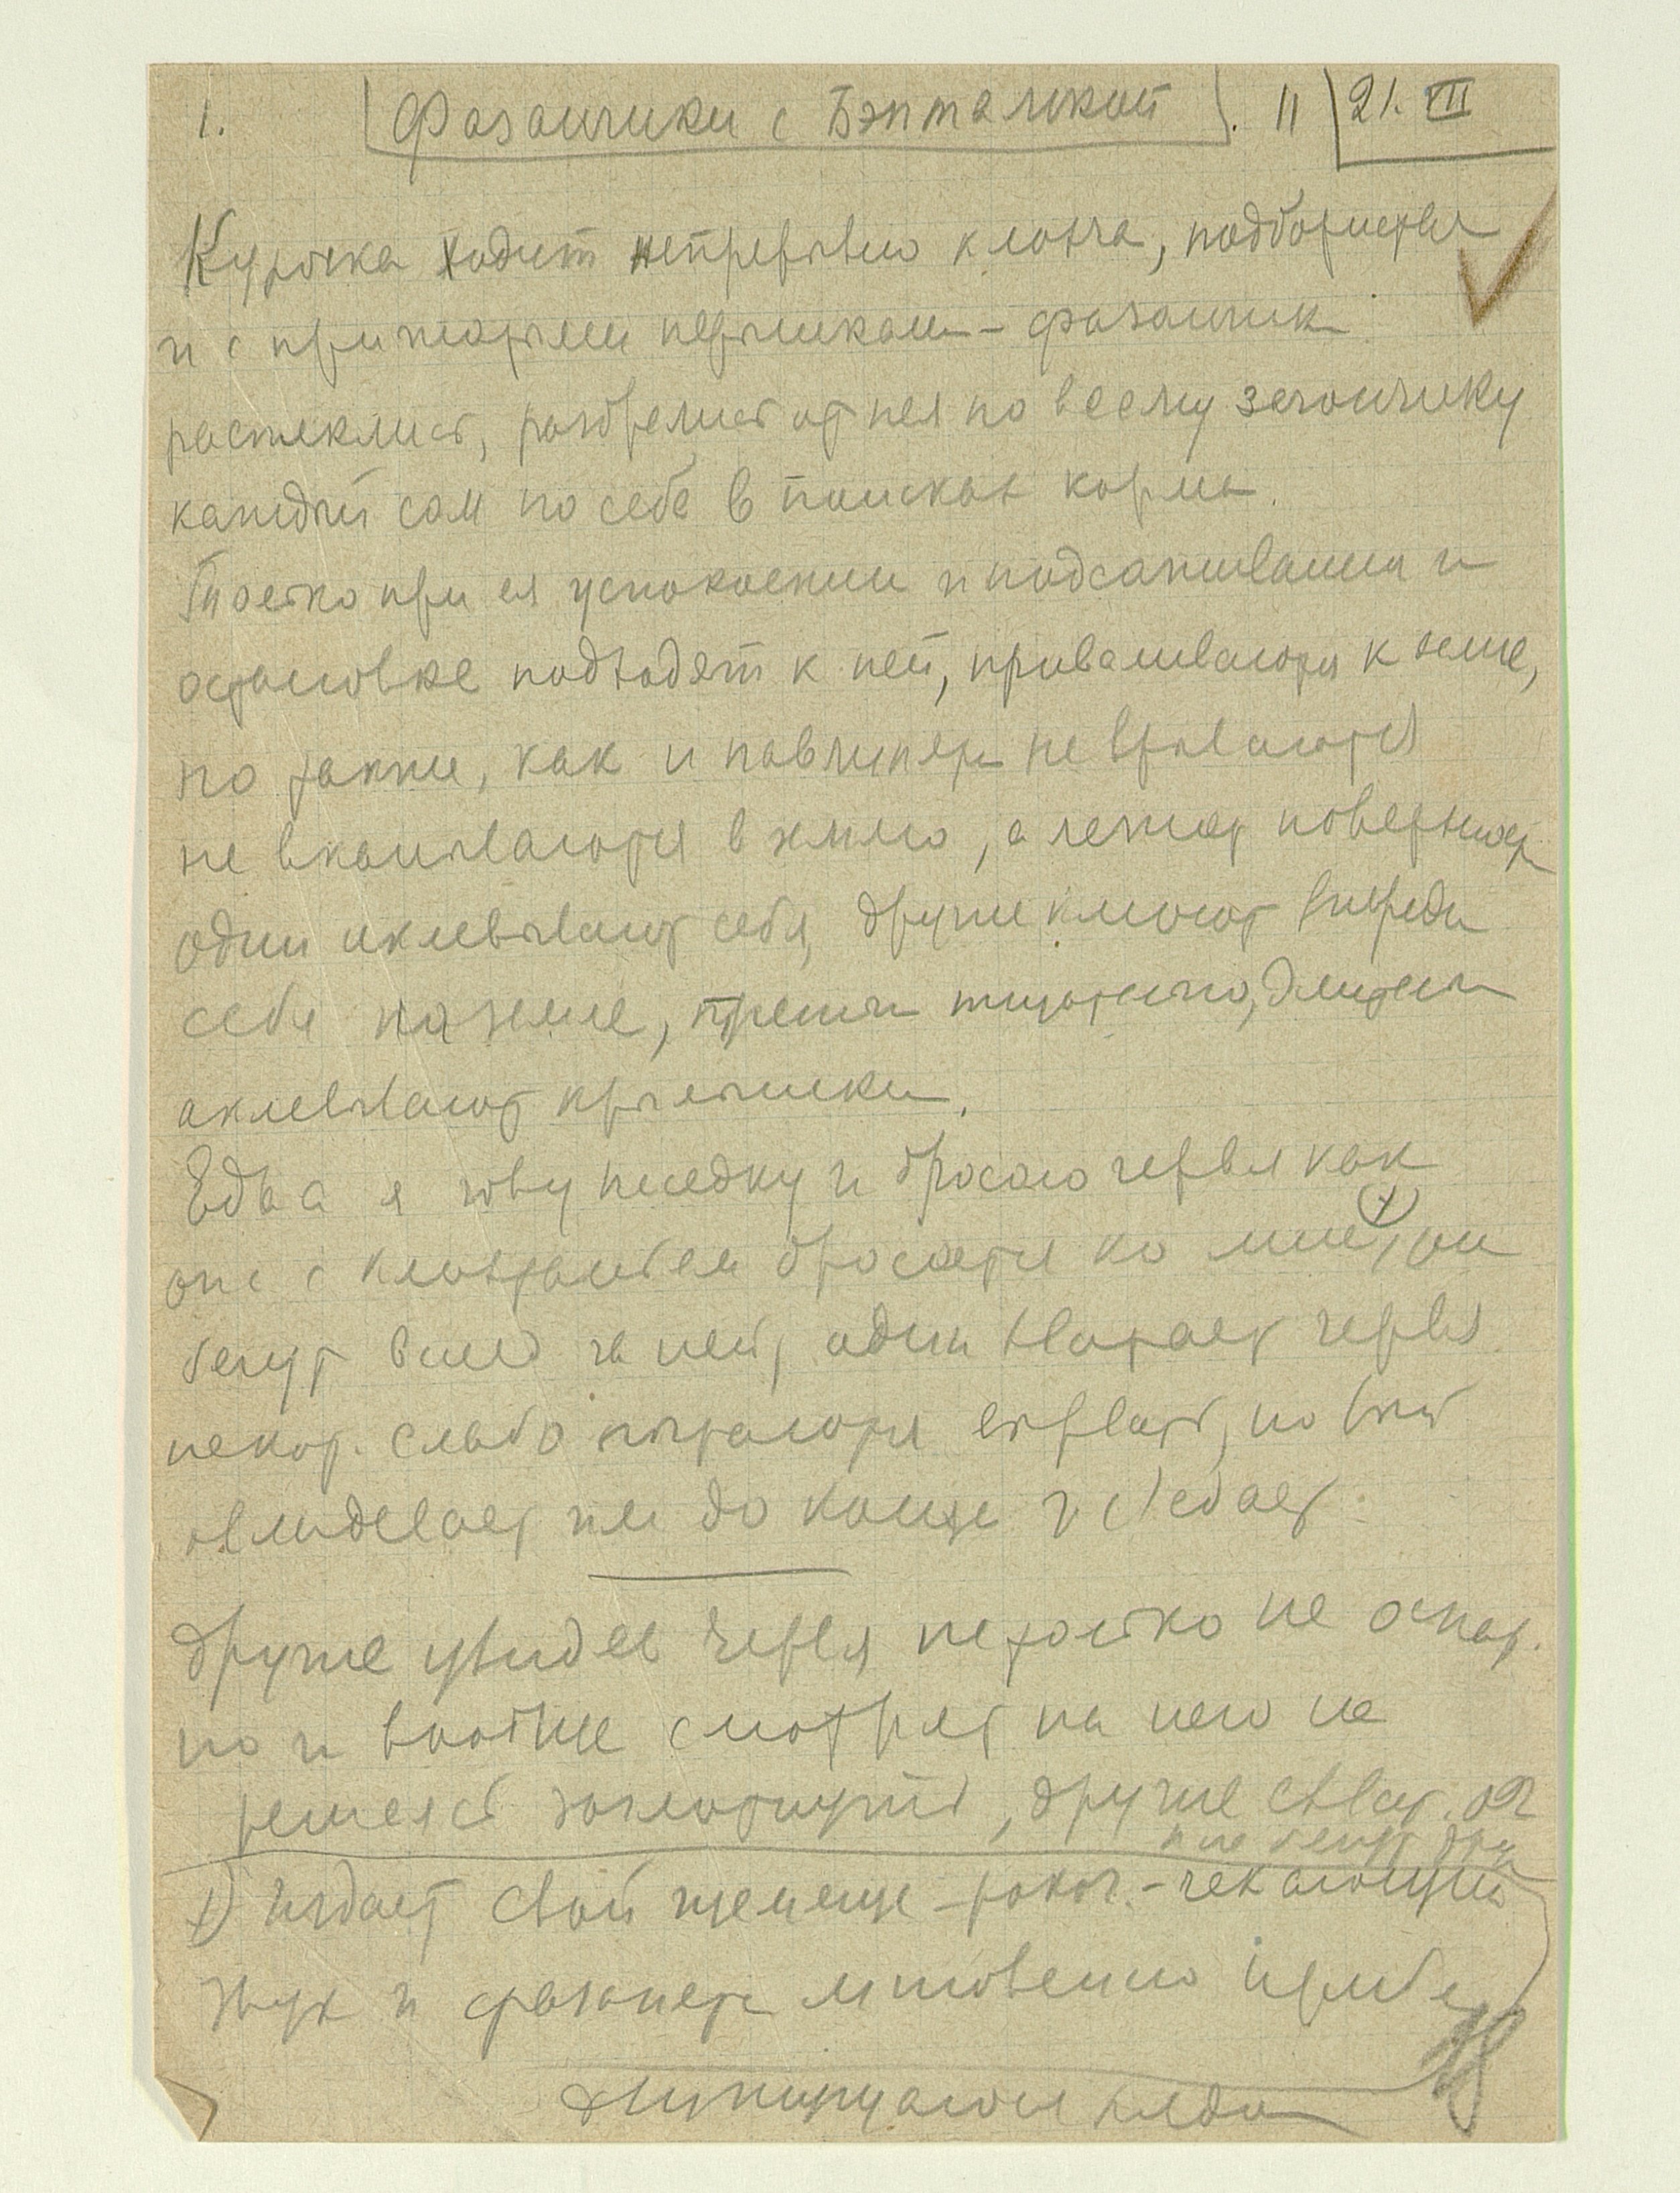 1. Фазанчики с Бэнтамкой. 11 21. VII
Курочка ходит непрерывно клохча, подбористая
и с прижатыми перышками – фазанчик
растеклись, разбрелись от нея по всему загончику
каждый сам по себе в поисках корма.
Только при ея успокоении и подсаживании и
остановке подходят к ней, приваливаются к земле,
но также, как и павлинята не врываются
не вкапываются в землю, а лежат поверхност
одни оклевывают себя, другие клюют впереди
себя на земле, третьи тщательно,
оклевывают крылышки.
Едва я зову наседку и бросаю червя как
она с клохтаньем бросается ко мне +), они
бегут вслед за ней, один хватает червя
некот. слабо пытаются вырвать, но
овладевает им до конца и съедает.
Другие увидев червя не только не оспар.
но и вообще смотрят на него не
решаясь заклюнуть, другие схват. от
+) издает свой щемяще-рокоч.-чекающий
звук и фазанята мгновенно